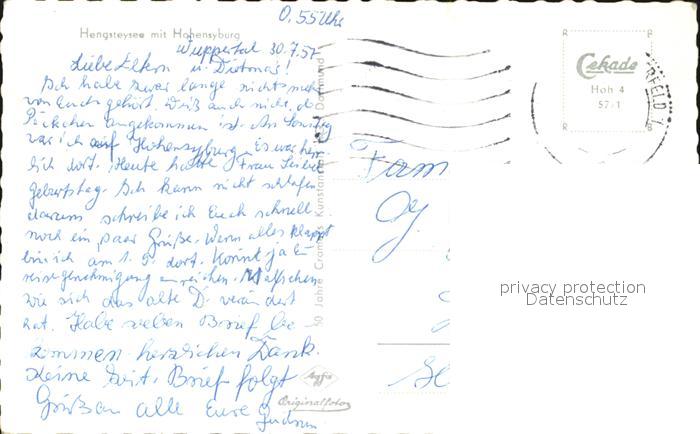 0.55 Uhr
Hengsteysee mit Hohensyburg
Wuppertal 30.7.57
Liebe Eltern u. Dietmar!
Ich habe zwar lange nichts mehr
von Euch gehört. Weiß auch nicht, ob
Päckchen angekommen ist. Am Sonntag
war ich auf Hohensyburg. Es war herr-
lich dort. Heute hatte Frau
Geburtstag. Ich kann nicht schlafen
darum schreibe ich Euch schnell
noch ein paar Grüße. Wenn alles klappt
bin ich am 1. 9. dort. Könnt ja Ein-
reisegenehmigung einreichen. Mal sehen
wie sich das alte D. verändert
hat. Habe lieben Brief be-
kommen herzlichen Dank.
Keine Zeit. Brief folgt
Grüßen alle Eure Gudrun.
50 Jahre Cramers Kunstanstalt Dortmund
Agfa
Originalfoto
Cekade
Hoh 4
57-1
RFELD 1
Fam
privacy protection
Datenschutz